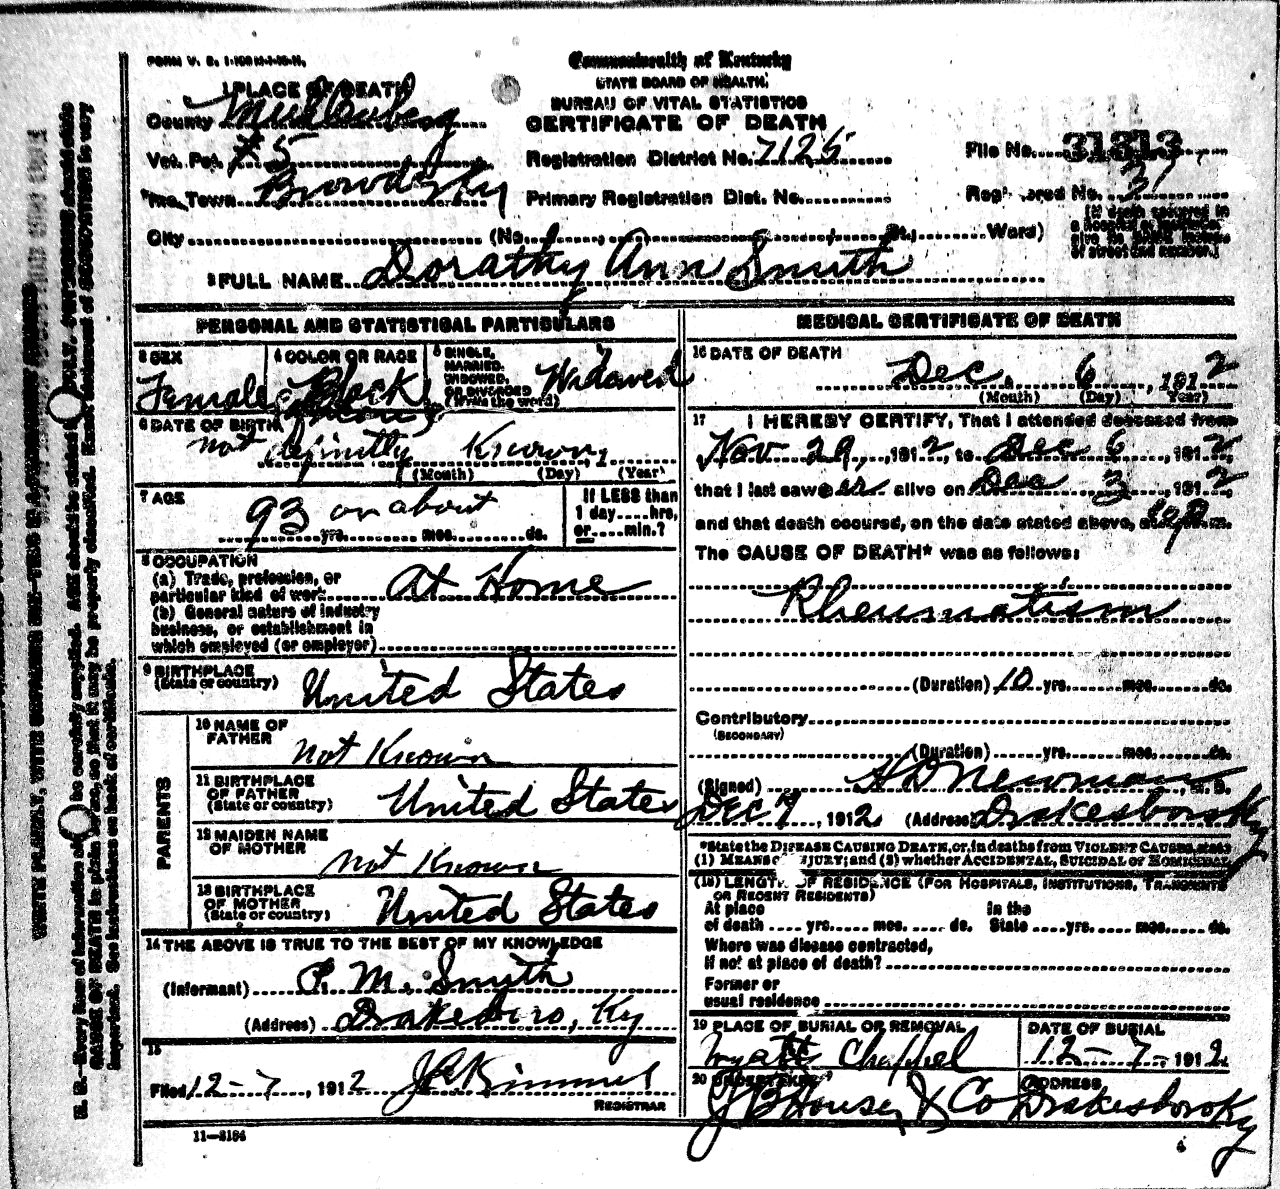 FORM V. S. 1-
Commonwealth of Kentucky
STATE BOARD OF HEALTH.
BUREAU OF VITAL STATISTICS
CERTIFICATE OF DEATH
1 PLACE OF DEATH
County
Vot. Pct. # 5
Registration District No. 7125
File No. 31313
Inc. Town Browder Ky
Primary Registration Dist. No.
Registered No. 31
City (No. , St., Ward)
(If death occurred in
a Hospital or Institution
give its NAME instead
of street and number.)
2 FULL NAME Dorathy Ann Smith
PERSONAL AND STATISTICAL PARTICULARS
3 SEX
Female
4 COLOR OR RACE
Black
5 SINGLE,
MARRIED,
WIDOWED,
OR DIVORCED
(Write the word)
Widowed
6 DATE OF BIRTH
not definitly Known
(Month) (Day) (Year)
7 AGE
93 or about
yrs. mos. ds.
If LESS than
1 day....hrs,
or....min.?
8 OCCUPATION
(a) Trade, profession, or
particular kind of work At Home
(b) General nature of industry
business, or establishment in
which employed (or employer)
9 BIRTHPLACE
(State or country)
United States
PARENTS
10 NAME OF
FATHER
not Known
11 BIRTHPLACE
OF FATHER
(State or country)
United States
12 MAIDEN NAME
OF MOTHER
not Known
13 BIRTHPLACE
OF MOTHER
(State or country)
United States
14 THE ABOVE IS TRUE TO THE BEST OF MY KNOWLEDGE
(Informant) P. M. Smith
(Address) Drakesboro, Ky
15
Filed 12-7, 1912 Kimmel
REGISTRAR
11-3184
MEDICAL CERTIFICATE OF DEATH
16 DATE OF DEATH
Dec. 6, 1912
(Month) (Day) Year)
17 I HEREBY CERTIFY, That I attended deceased from
Nov 29, 1912, to Dec 6, 1912,
that I last saw er alive on Dec 3, 1912
and that death occured, on the date stated above, at m.
The CAUSE OF DEATH* was as follows:
Rheumatism
(Duration) 10 yrs. mos. ds.
Contributory
(SECONDARY)
(Duration) yrs. mos. ds.
(Signed) H D Newman, M. D.
Dec 7, 1912 (Address) Drakesboro Ky
*State the DISEASE CAUSING DEATH, or, in deaths from VIOLENT CAUSES, state
(1) MEANS OF INJURY; and (2) whether ACCIDENTAL, SUICIDAL or HOMICIDAL
(18) LENGTH OF RESIDENCE (FOR HOSPITALS, INSTITUTIONS, TRANSIENTS
OR RECENT RESIDENTS)
At place In the
of death .... yrs. .... mos. .... ds. State .... yrs. .... mos. .... ds.
Where was disease contracted,
if not at place of death?
Former or
usual residence
19 PLACE OF BURIAL OR REMOVAL
Wyatt Chappel
DATE OF BURIAL
12-7-1912
20 UNDERTAKER
J B House & Co
ADDRESS
Drakesboro Ky
N. B.—Every item of information should be carefully supplied. AGE should be stated EXACTLY. PHYSICIANS should state
CAUSE OF DEATH in plain terms, so that it may be properly classified. Exact statement of OCCUPATION is very
important. See instructions on back of certificate.